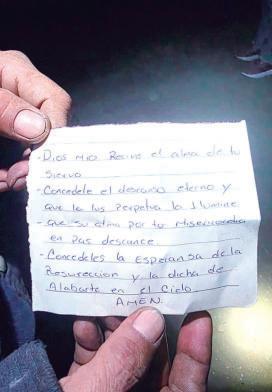 - Dios mio Recive el alma de tu
siervo
- Concedele el descanso eterno y
que la lus perpetua lo ilumine
- que su alma por tu Misericordia
en pas descance.
- Concedeles la Esperansa de la
Resureccion y la dicha de
Alabarte en el Cielo.
AMEN.